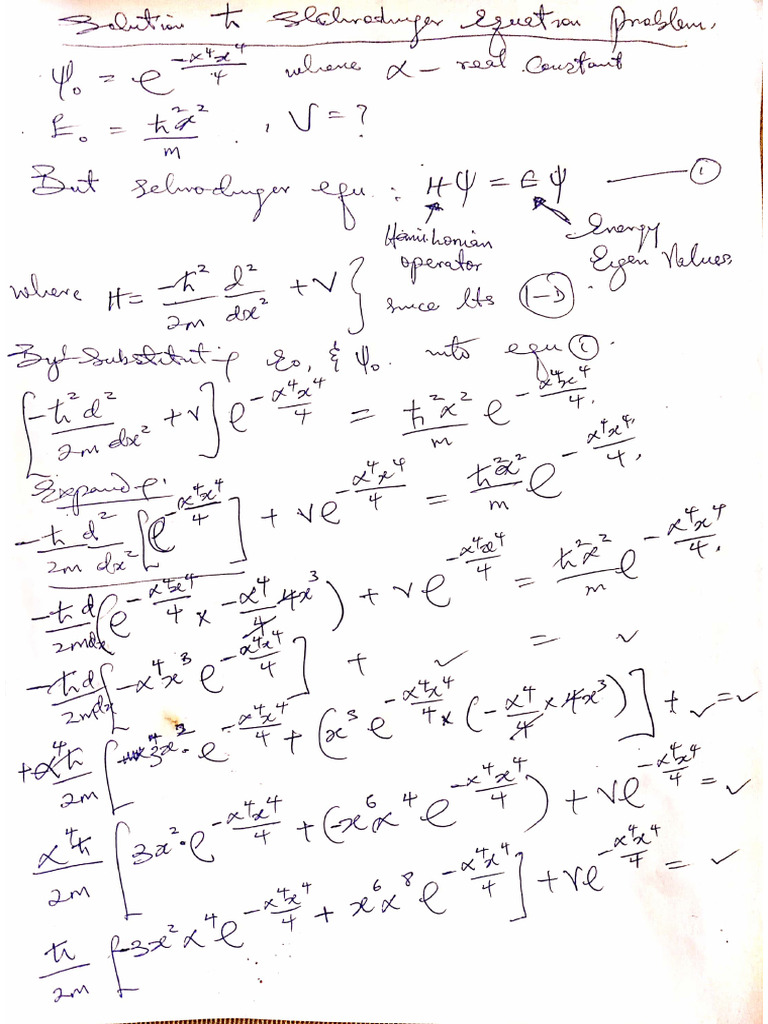 Solution to Schrodinger Equation problem.
ψ₀ = e^{-α⁴x⁴/4} where α – real constant
E₀ = ħ²α²/m , V = ?
But Schrodinger equ. : Hψ = Eψ ——— ①
Hamiltonian operator
Energy Eigen Values
where H = -ħ²/2m d²/dx² + V } since its (1-D).
By Substituting E₀, & ψ₀ into equ ①.
[-ħ²d²/2m dx² + V] e^{-α⁴x⁴/4} = ħ²α²/m e^{-α⁴x⁴/4}.
Expandg.
-ħd²/2m dx² [e^{-α⁴x⁴/4}] + Ve^{-α⁴x⁴/4} = ħ²α²/m e^{-α⁴x⁴/4}.
-ħd/2mdx (e^{-α⁴x⁴/4} × -α⁴/4 4x³) + Ve^{-α⁴x⁴/4} = ħ²α²/m e^{-α⁴x⁴/4}.
-ħd/2mdx [-α⁴x³ e^{-α⁴x⁴/4}] + ✓ = ✓
+α⁴ħ/2m [3x²·e^{-α⁴x⁴/4} + (x³ e^{-α⁴x⁴/4} × (-α⁴/4 × 4x³)] + ✓ = ✓
α⁴ħ/2m [3x²·e^{-α⁴x⁴/4} + (-x⁶α⁴e^{-α⁴x⁴/4}) + Ve^{-α⁴x⁴/4} = ✓
ħ/2m [-3x²α⁴e^{-α⁴x⁴/4} + x⁶α⁸e^{-α⁴x⁴/4}] + Ve^{-α⁴x⁴/4} = ✓